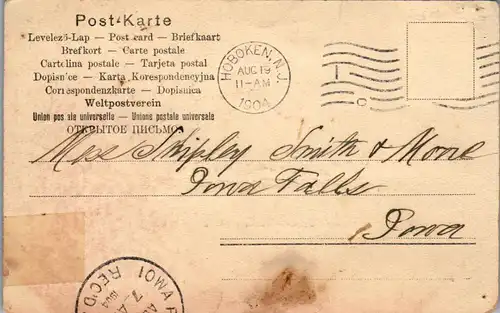 Post-Karte
Levelező-Lap — Post card — Briefkaart
Brefkort — Carte postale
Cartolina postale — Tarjeta postal
Dopisnice — Karta Korespondencyjna
Correspondenzkarte — Dopisnica
Weltpostverein
Union postale universelle — Unione postale universale
ОТКРЫТОЕ ПИСЬМО
HOBOKEN, N.J.
AUG 19
11-AM
1904
Shipley Smith & Moore
Iowa Falls
Iowa
IOWA
REC'D